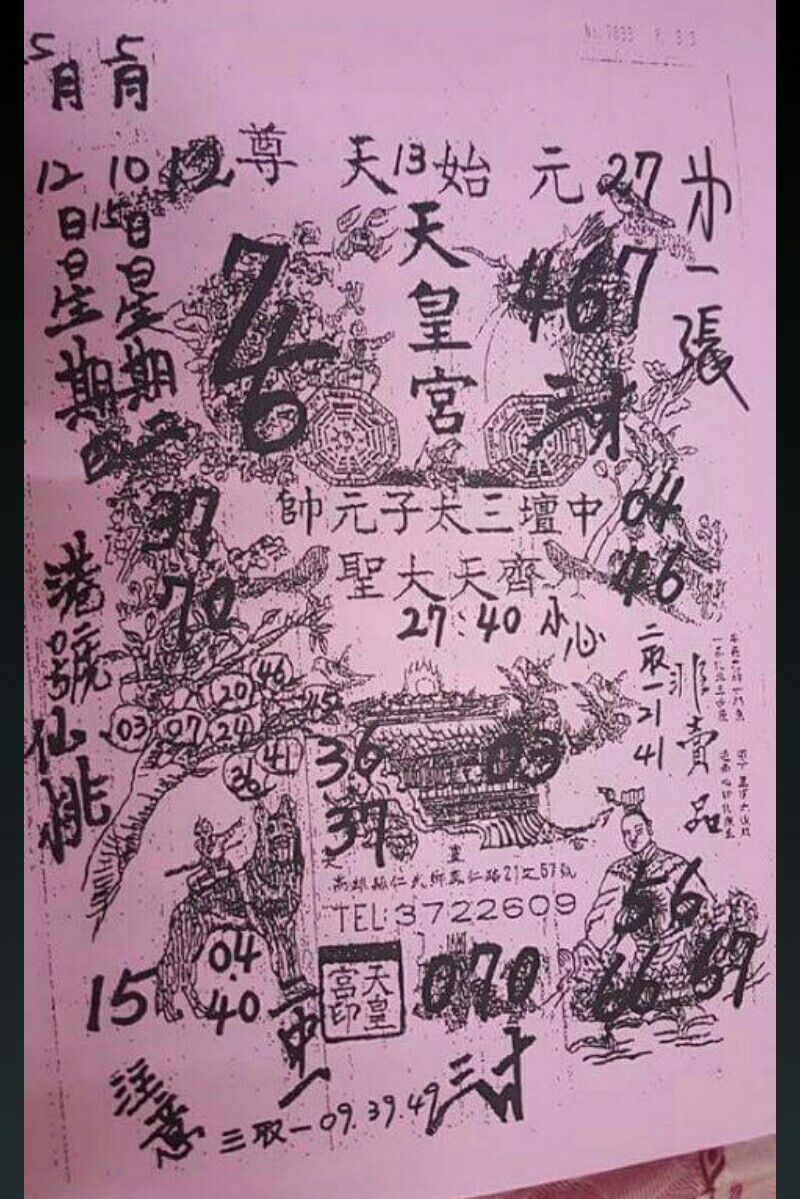 5月 5月
12日 10日 15
星期 星期
第一張
12 尊天始元 27
13
天皇宮
76
467
三才
帥元子太三壇中
聖大天齊
04
46
37
70
27.40 小心
港號仙桃
二取一 21 41
非賣品
46
20
45
03 07 24
41
36
36 03
37
高雄縣仁武鄉
仁路21之57號
TEL:3722609
56
66 67
04.
40
15
二中一
天皇宮印
070
三才
注意
三取一 09.39.49